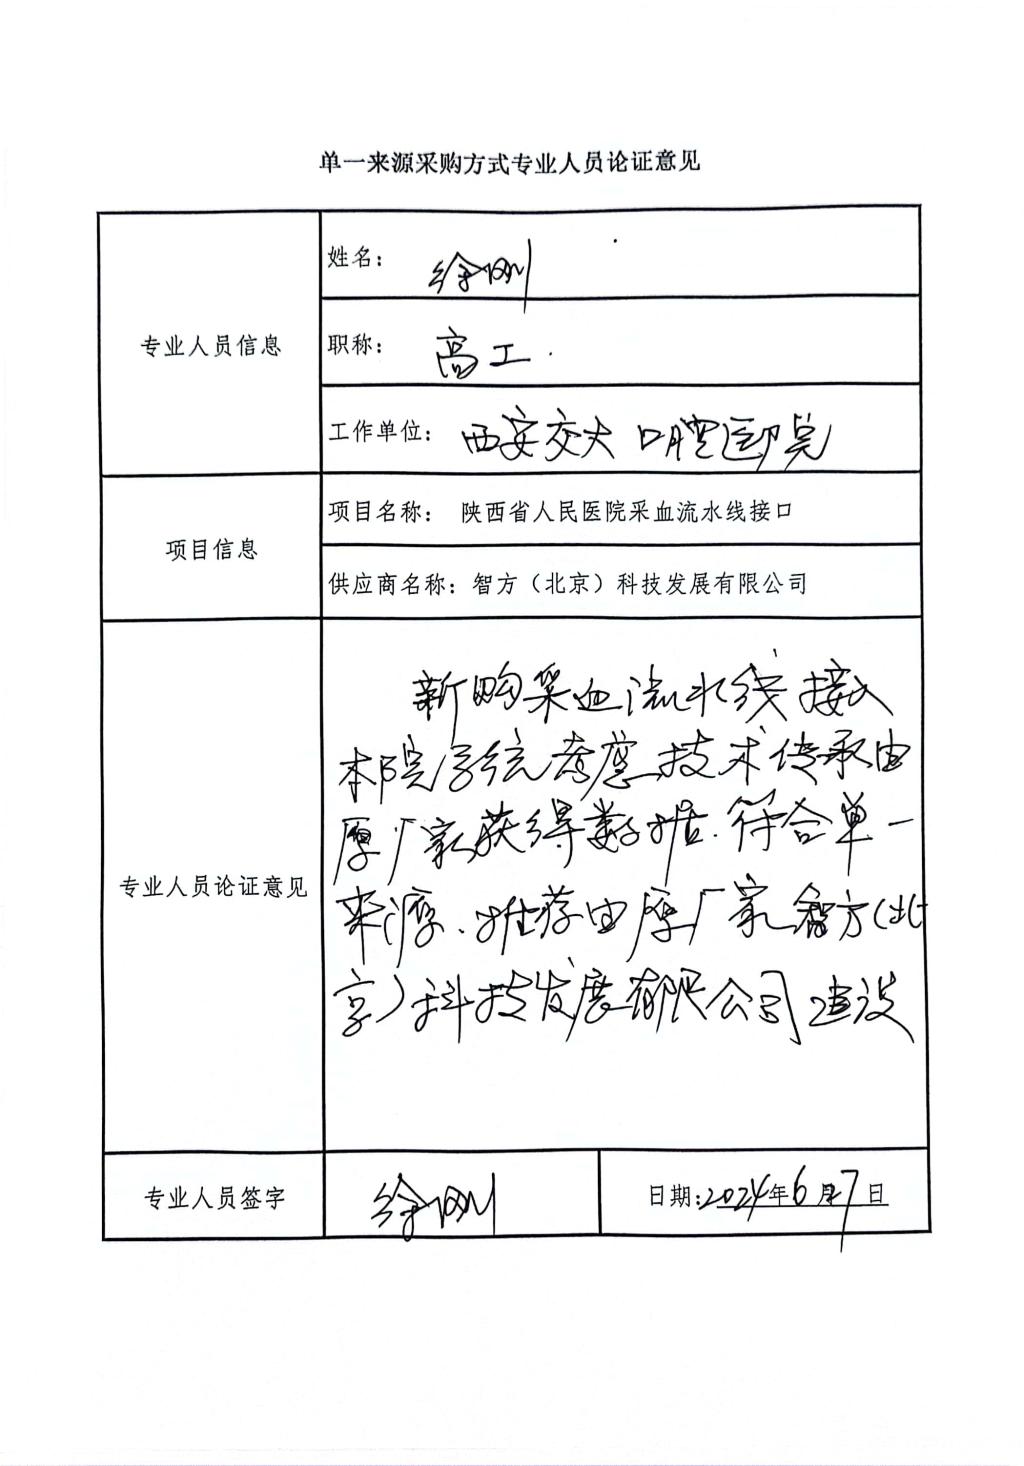 单一来源采购方式专业人员论证意见
专业人员信息
姓名： 徐刚
职称： 高工.
工作单位： 西安交大口腔医院
项目信息
项目名称： 陕西省人民医院采血流水线接口
供应商名称：智方（北京）科技发展有限公司
专业人员论证意见
新购采血流水线接入
本院系统考虑技术传承由
原厂家获得数据.符合单一
来源、推荐由原厂家智方(北
京)科技发展有限公司建设
专业人员签字
徐刚
日期:2024年6月7日